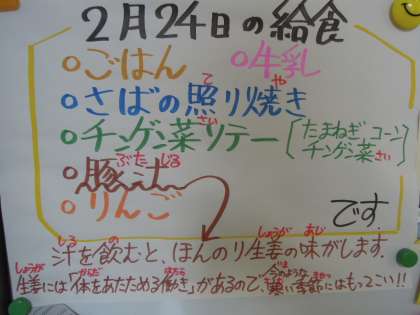 2月24日の給食
○ごはん ○牛乳
○さばの照り焼き
○チンゲン菜ソテー[たまねぎ コーン
チンゲン菜]
○豚汁
○りんご
です。
汁を飲むと、ほんのり生姜の味がします。
生姜には「体をあたためる働き」があるので、今のような
寒い季節にはもってこい!!